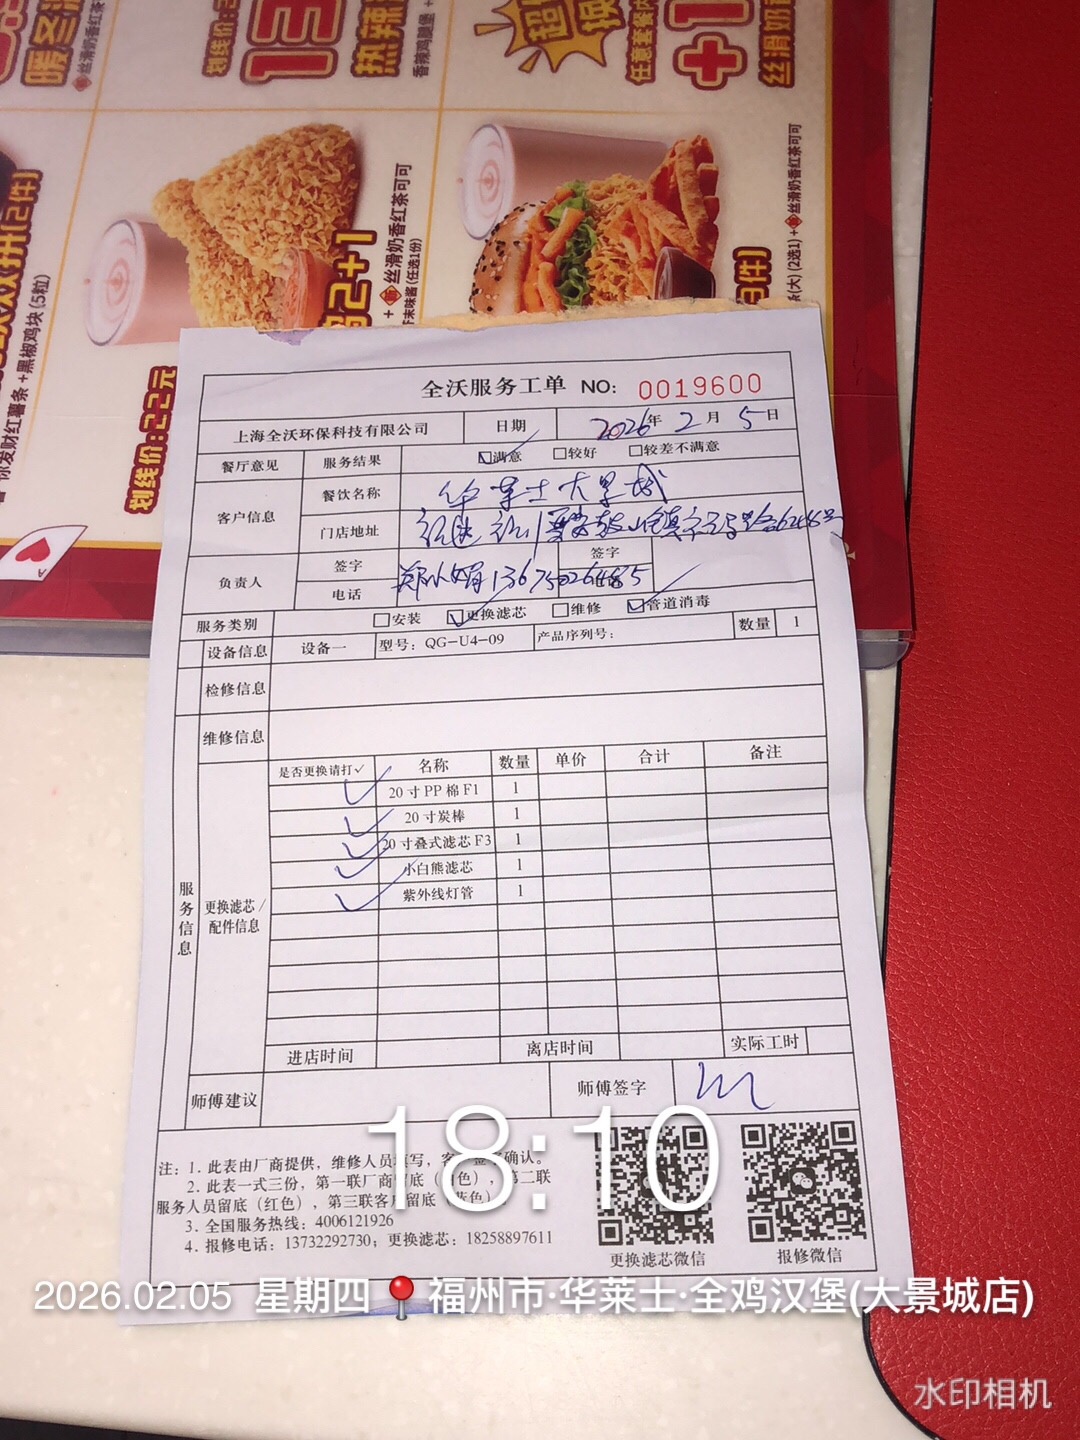 暖冬
丝滑奶香红茶
划线价:
13
热辣
香辣鸡腿堡+
超
换
任意套餐
+1
丝滑奶
拼(2件)
薯条+黑椒鸡块(5粒)
划线价:22元
2+1
+丝滑奶香红茶可可
味酱(任选1份)
件)
(大)(2选1)+丝滑奶香红茶可可
全沃服务工单 NO: 0019600
上海全沃环保科技有限公司 日期 2026年 2月 5日
餐厅意见 服务结果 满意 较好 较差不满意
客户信息 餐饮名称 华莱士大景城
门店地址
负责人 签字 签字
电话 13675026485
服务类别 安装 更换滤芯 维修 管道消毒
设备信息 设备一 型号: QG-U4-09 产品序列号: 数量 1
检修信息
维修信息
服务信息 更换滤芯/配件信息
是否更换请打✓ 名称 数量 单价 合计 备注
✓ 20寸PP棉F1 1
✓ 20寸炭棒 1
✓ 20寸叠式滤芯F3 1
✓ 小白熊滤芯 1
✓ 紫外线灯管 1
进店时间 离店时间 实际工时
师傅建议 师傅签字
注: 1. 此表由厂商提供, 维修人员填写, 客户签字确认。
2. 此表一式三份, 第一联厂商留底(白色), 第二联
服务人员留底(红色), 第三联客户留底(蓝色)
3. 全国服务热线: 4006121926
4. 报修电话: 13732292730; 更换滤芯: 18258897611
更换滤芯微信 报修微信
18:10
2026.02.05 星期四 福州市·华莱士·全鸡汉堡(大景城店)
水印相机